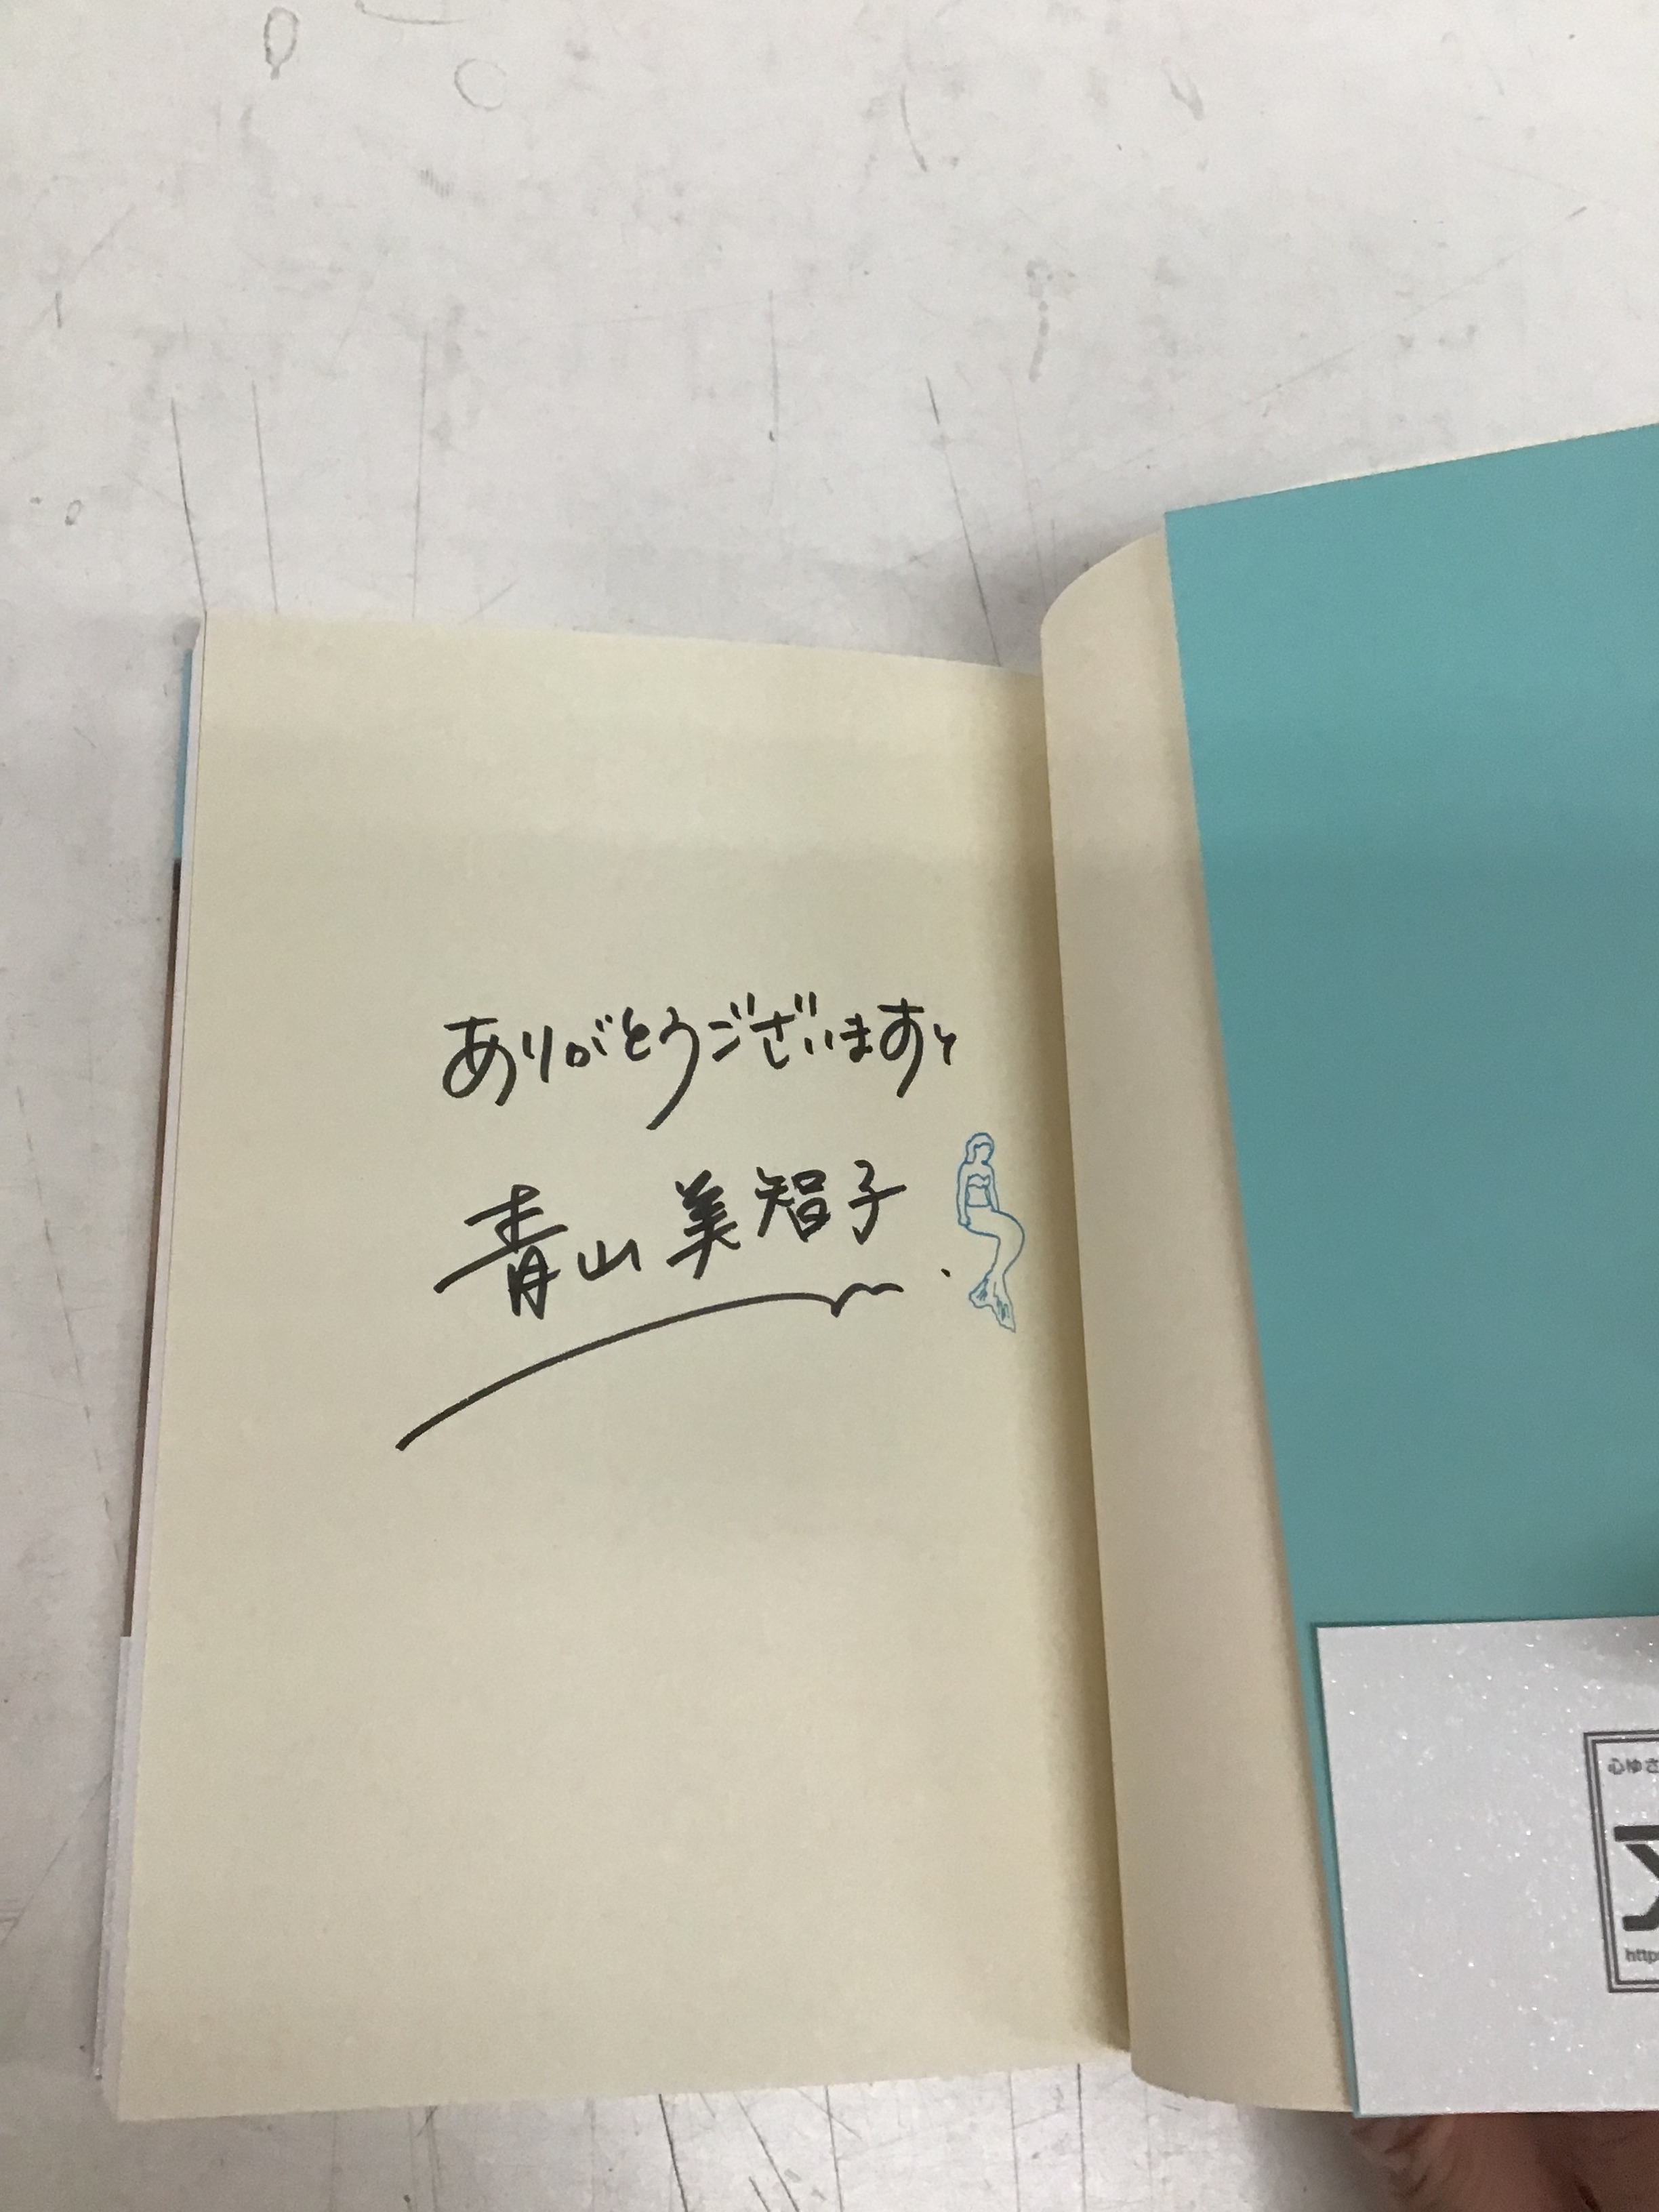 ありがとうございます
青山美智子
心ゆさ
文
http